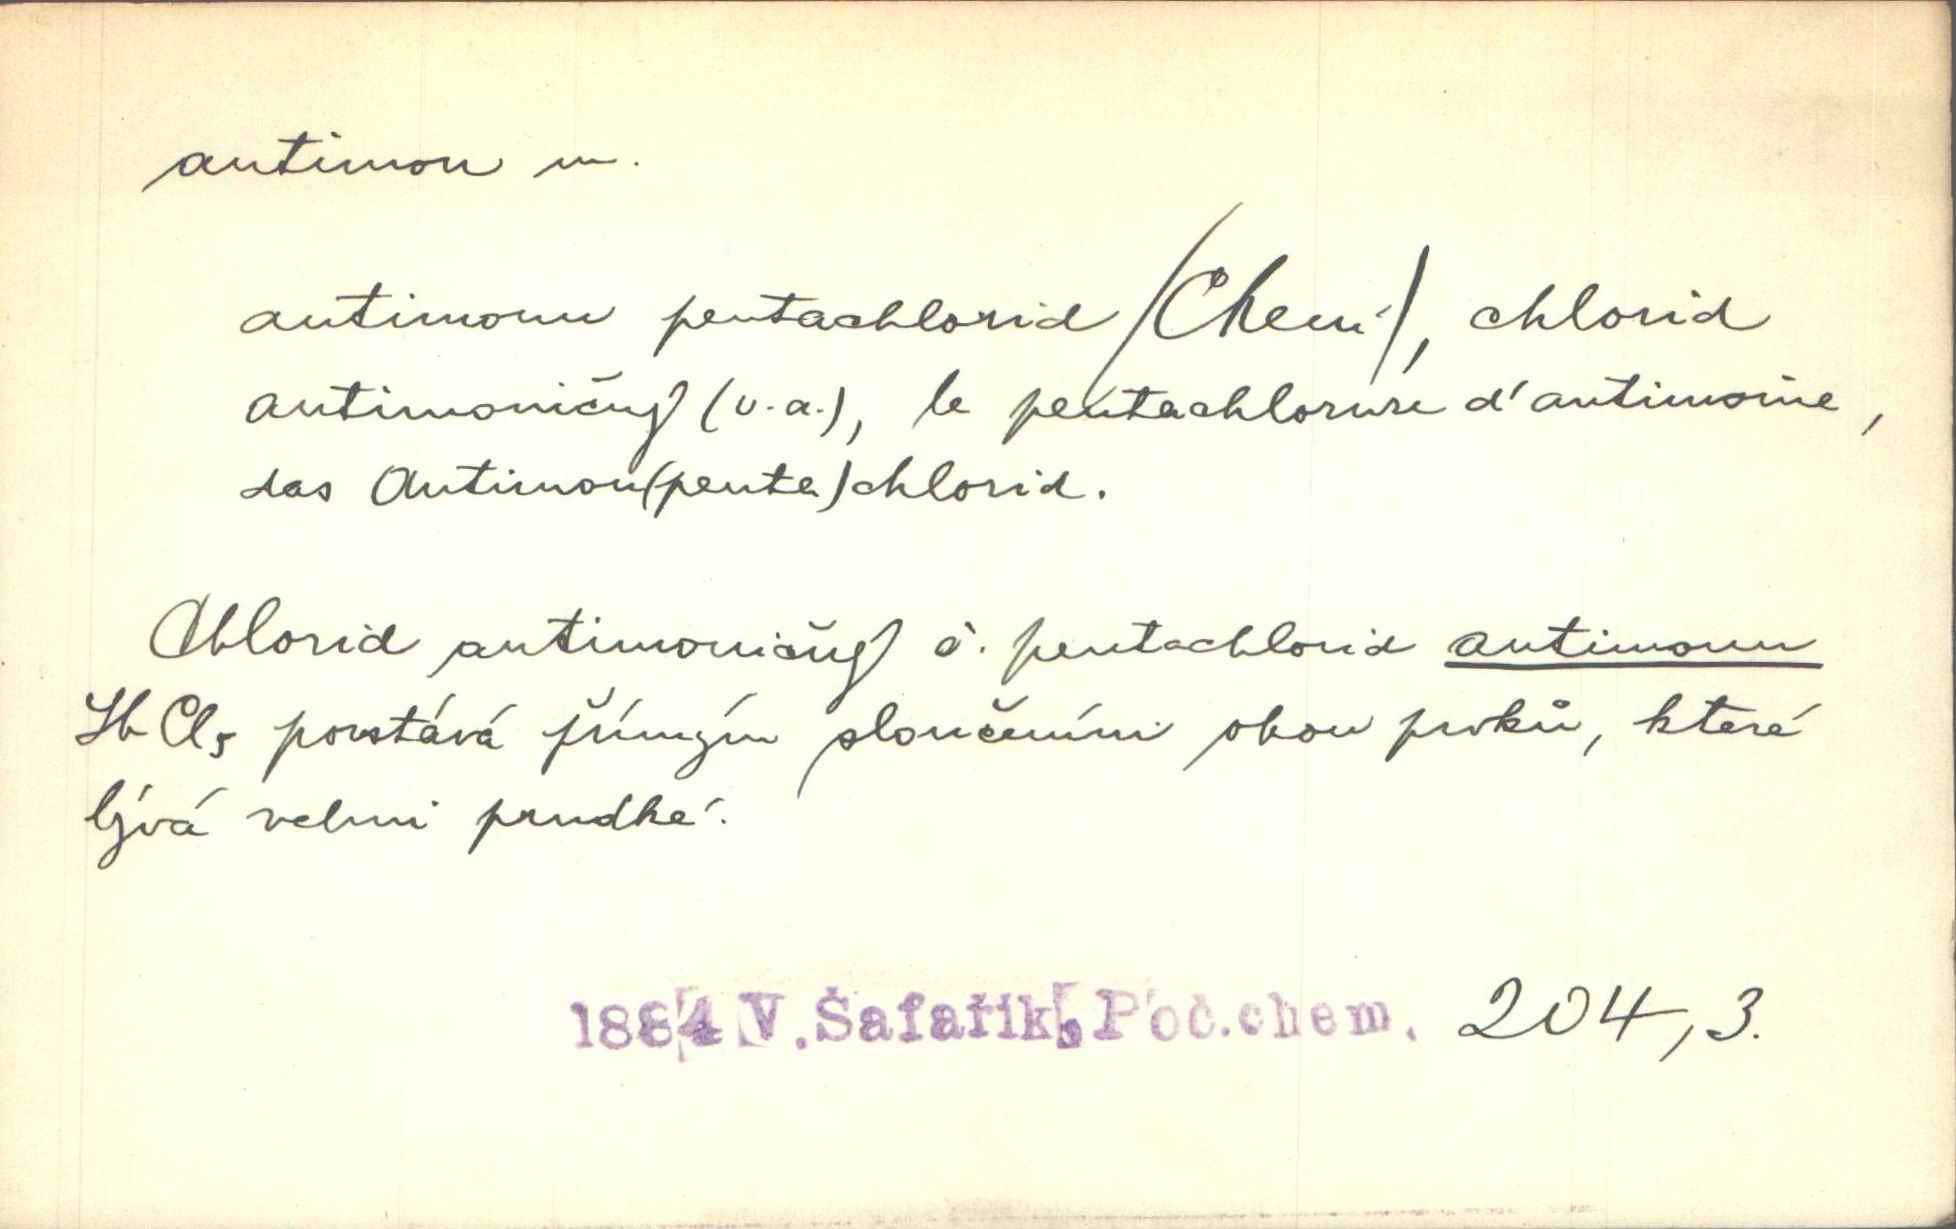 antimon m.
antimonu pentachlorid (Chem.), chlorid
antimoničný (v.a.), le pentachlorure d'antimoine,
das Antimon(penta)chlorid.
Chlorid antimoničný č. pentachlorid antimonu
Sb Cl5 povstává přímým sloučením obou prvků, které
bývá velmi prudké.
1884 V. Šafařík, Poč.chem. 204,3.